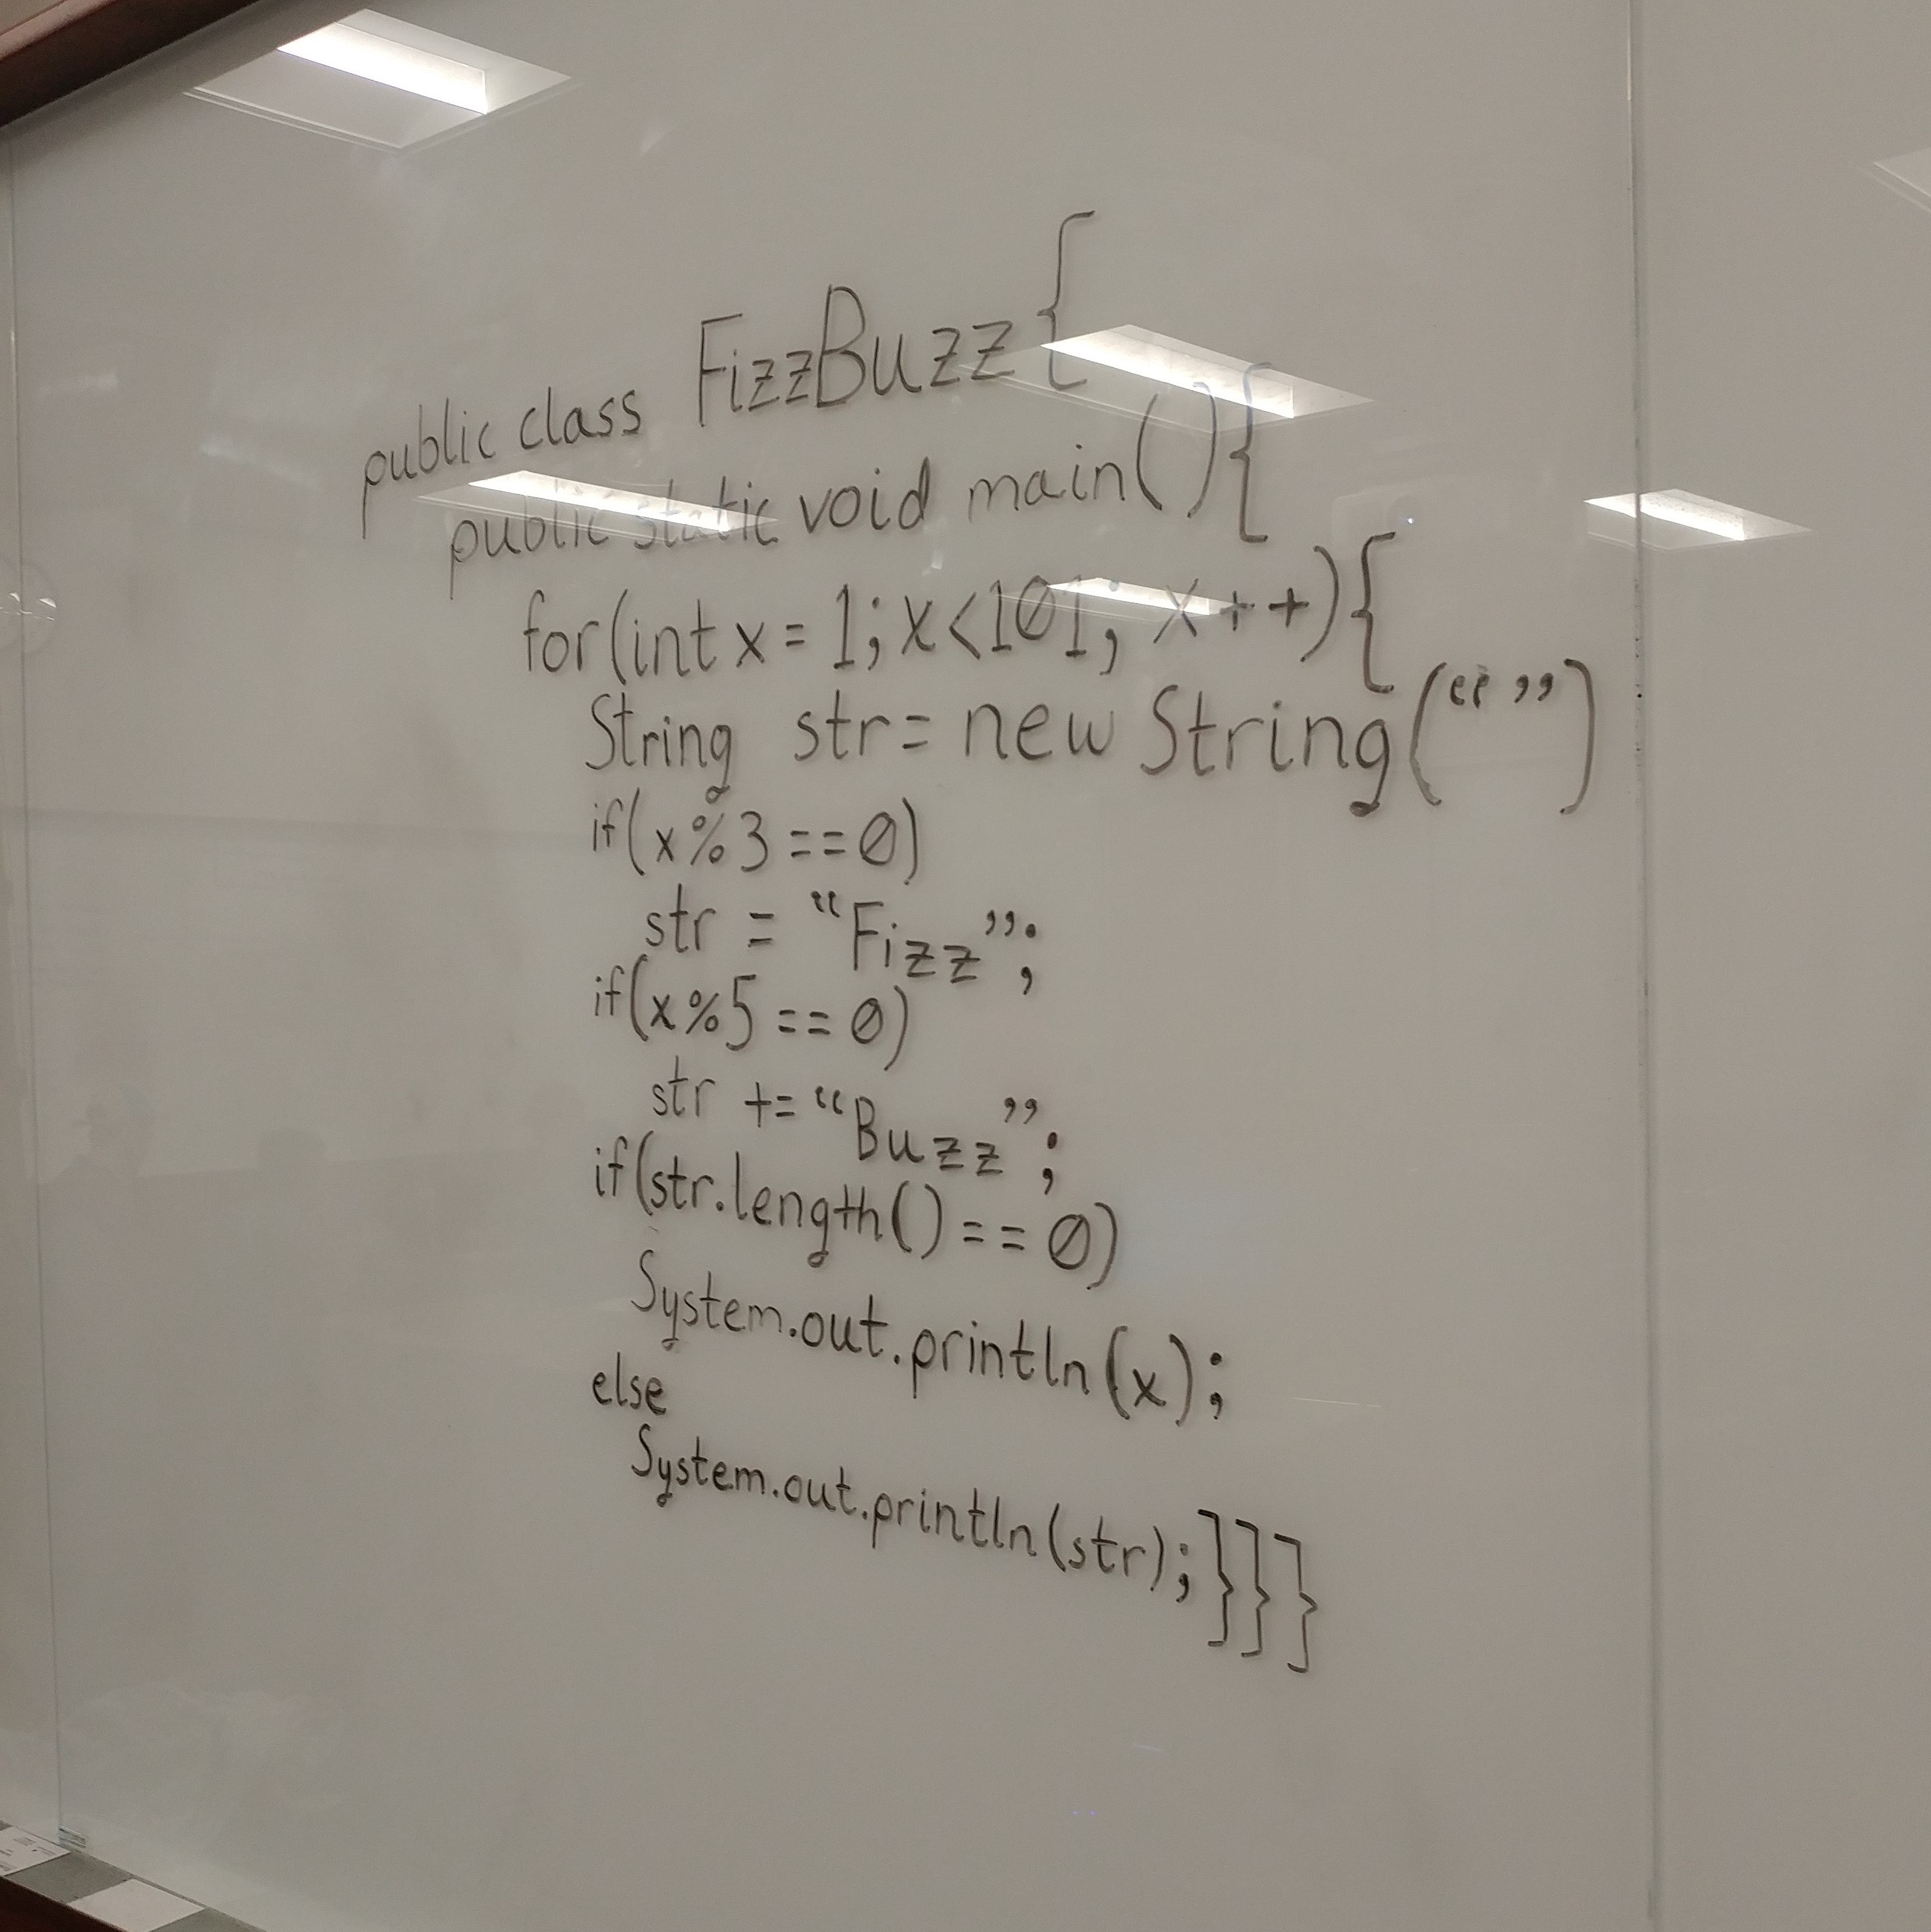 public class FizzBuzz{
public static void main(){
for(int x = 1; x<101; x++){
String str = new String(“”)
if(x%3==0)
str = “Fizz”;
if(x%5==0)
str += “Buzz”;
if(str.length()==0)
System.out.println(x);
else
System.out.println(str);}}}